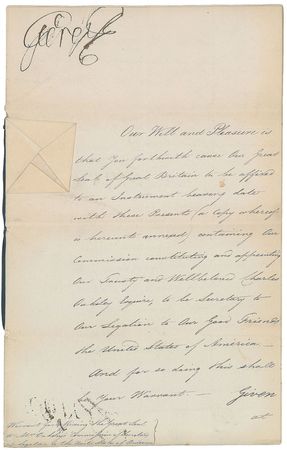 George R
Our Will and Pleasure is
that You forthwith cause Our Great
Seal of Great Britain to be affixed
to an Instrument bearing date
with these Presents (a Copy whereof
is hereunto annexed) containing Our
Commission constituting and appointing
Our Trusty and Wellbeloved Charles
Oakeley Esquire, to be Secretary to
Our Legation to Our Good Friends
the United States of America —
And for so doing this shall
be Your Warrant — Given
at
Warrant for affixing the Great Seal
to Mr. Oakeley's Commission of Secretary
of Legation to the United States of America